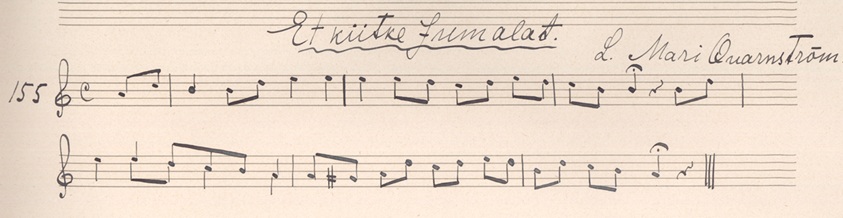 Et kiitke Jumalat.
L. Mari Qvarnström.
155